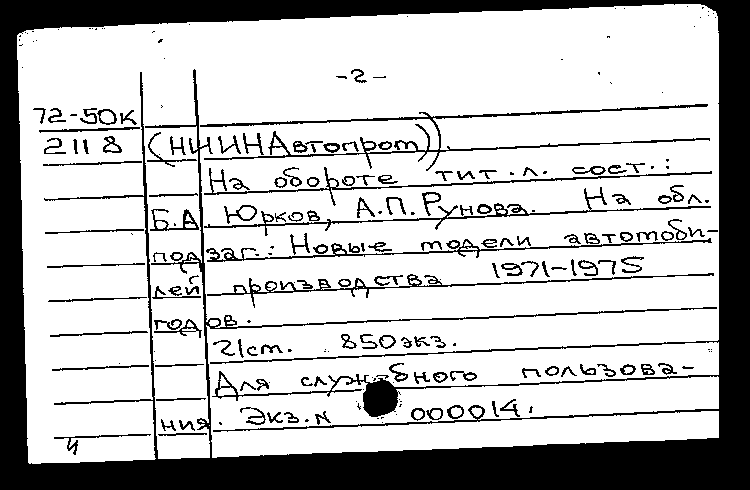 -2-
72-50к
2118 (НИИНАвтопром)).
На обороте тит.л. сост.:
Б.А. Юрков, А.П.Рунова. На обл.
подзаг.: Новые модели автомоби-
лей производства 1971-1975
годов.
21см. 850экз.
Для служебного пользова-
ния. Экз.N 000014.